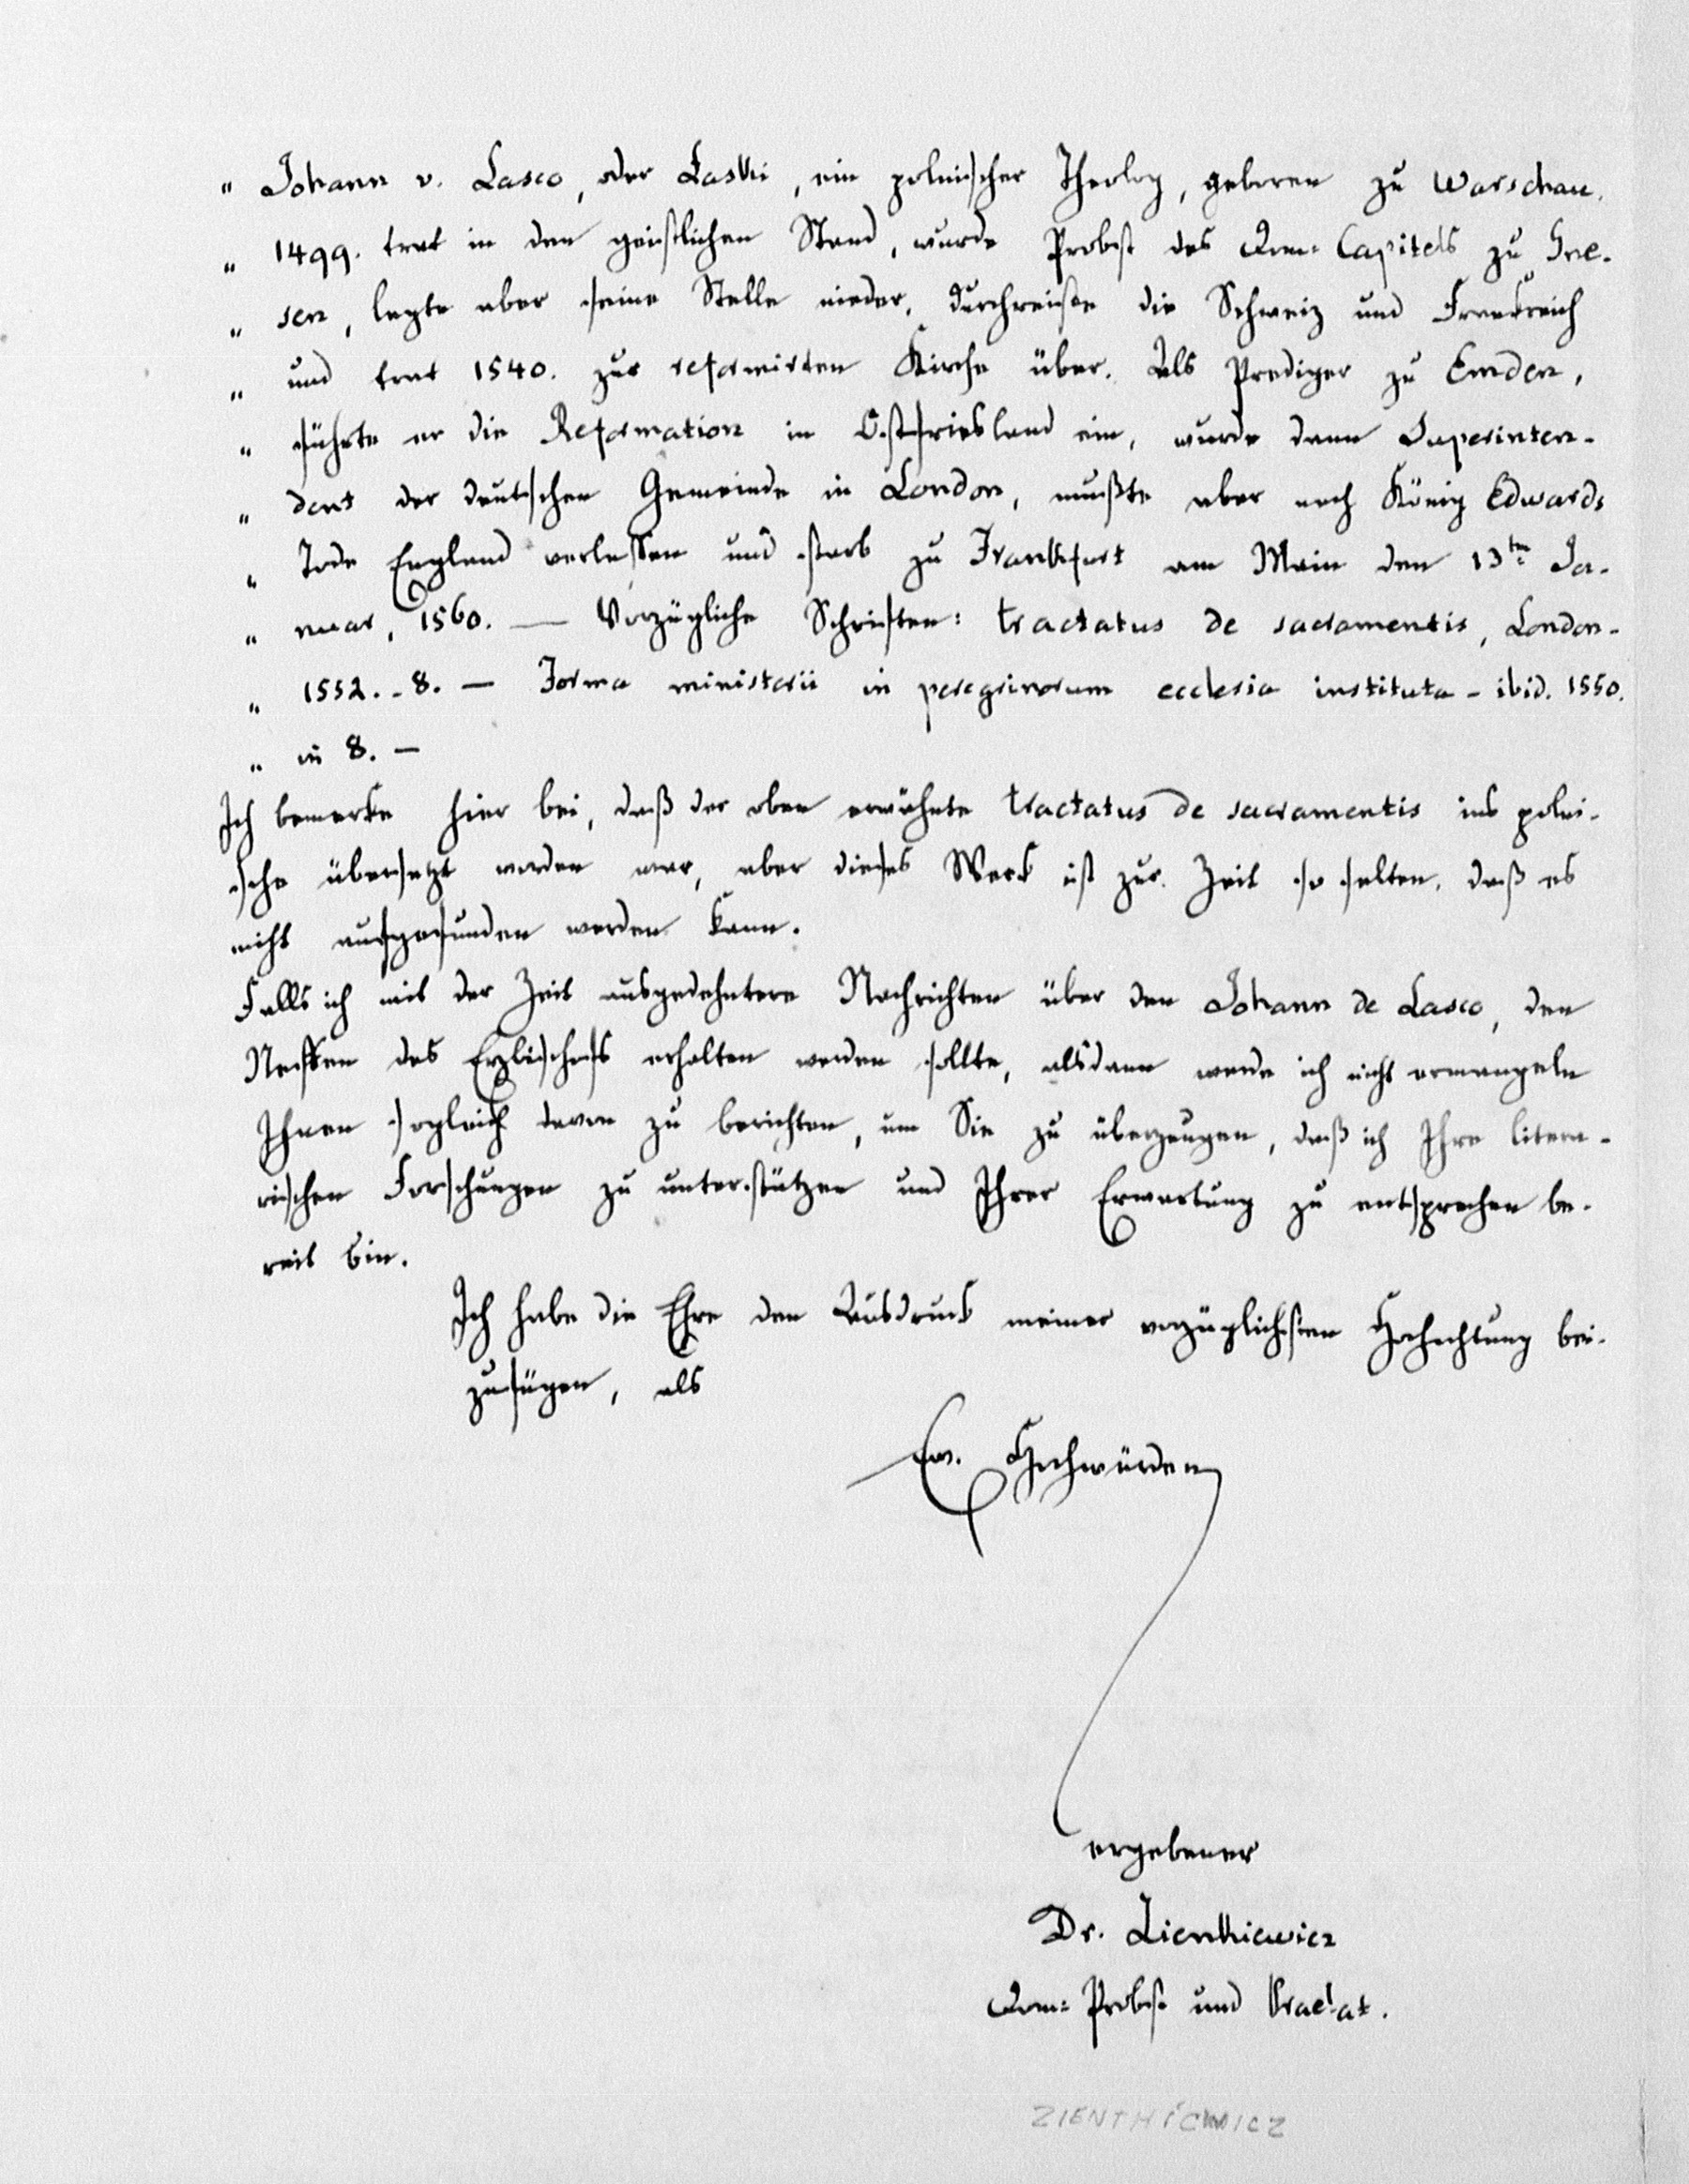 „ Johann v. Lasco, oder Laski, ein polnischer Theolog, geboren zu Warschau.
„ 1499. trat in den geistlichen Stand, wurde Probst des Dom-Capitels zu Gne-
„ sen, legte aber seine Stelle nieder, durchreiste die Schweiz und Frankreich
„ und trat 1540. zur reformirten Kirche über. Als Prediger zu Emden,
„ führte er die Reformation in Ostfriesland ein, wurde dann Superinten-
„ dent der deutschen Gemeinde in London, mußte aber nach König Edwards
„ Tode England verlassen und starb zu Frankfurt am Main den 13ten Ja-
„ nuar, 1560. — Vorzügliche Schriften: tractatus de sacramentis, London-
„ 1552. - 8. — Forma ministerii in peregrinorum ecclesia instituta - ibid. 1550.
„ in 8. —
Ich bemerke hier bei, daß der oben erwähnte tractatus de sacramentis ins polni-
sche übersetzt worden war, aber dieses Werk ist zur Zeit so selten, daß es
nicht aufgefunden werden kann.
Falls ich mit der Zeit ausgedehntere Nachrichten über den Johann de Lasco, den
Neffen des Erzbischofs erhalten werden sollte, alsdann werde ich nicht ermangeln
Ihnen sogleich davon zu berichten, um Sie zu überzeugen, daß ich Ihre litera-
rischen Forschungen zu unterstützen und Ihrer Erwartung zu entsprechen be-
reit bin.
Ich habe die Ehre den Ausdruck meiner vorzüglichsten Hochachtung bei-
zufügen, als
Ew. Hochwürden
ergebener
Dr. Zienkiewicz
Dom-Probst und Praelat.
ZIENTHICWICZ